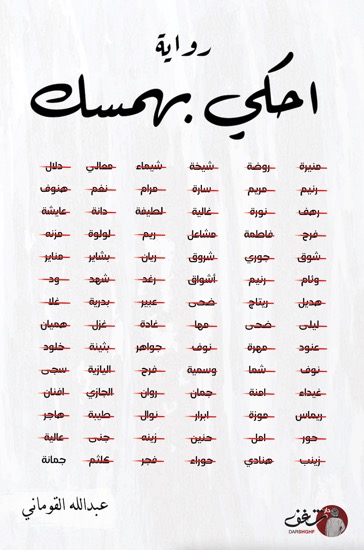 رواية
احكي بهمسك
منيرة روضة شيخة شيماء معالي دلال
رنيم مريم سارة مرام نغم هنوف
رهف نورة غالية لطيفة دانة عايشة
فرح فاطمة مشاعل ريم لولوة مزنه
شوق جوري شروق ريان بشاير مناير
وئام رنيم أشواق رغد شهد ود
هديل ريتاج ضحى عبير بدرية غلا
ليلى ضحى مها غادة غزل هميان
عنود مهرة نوف جواهر بثينة خلود
نوف شما وسمية فرح اليازية سجى
غيداء امنة جمان روان الجازي افنان
ريماس موزة ابرار نوال طيبة هاجر
حور امل حنين زينه جنى عالية
زينب هنادي حوراء فجر كلثم جمانة
عبدالله القوماني
شغف
DARSHGHF